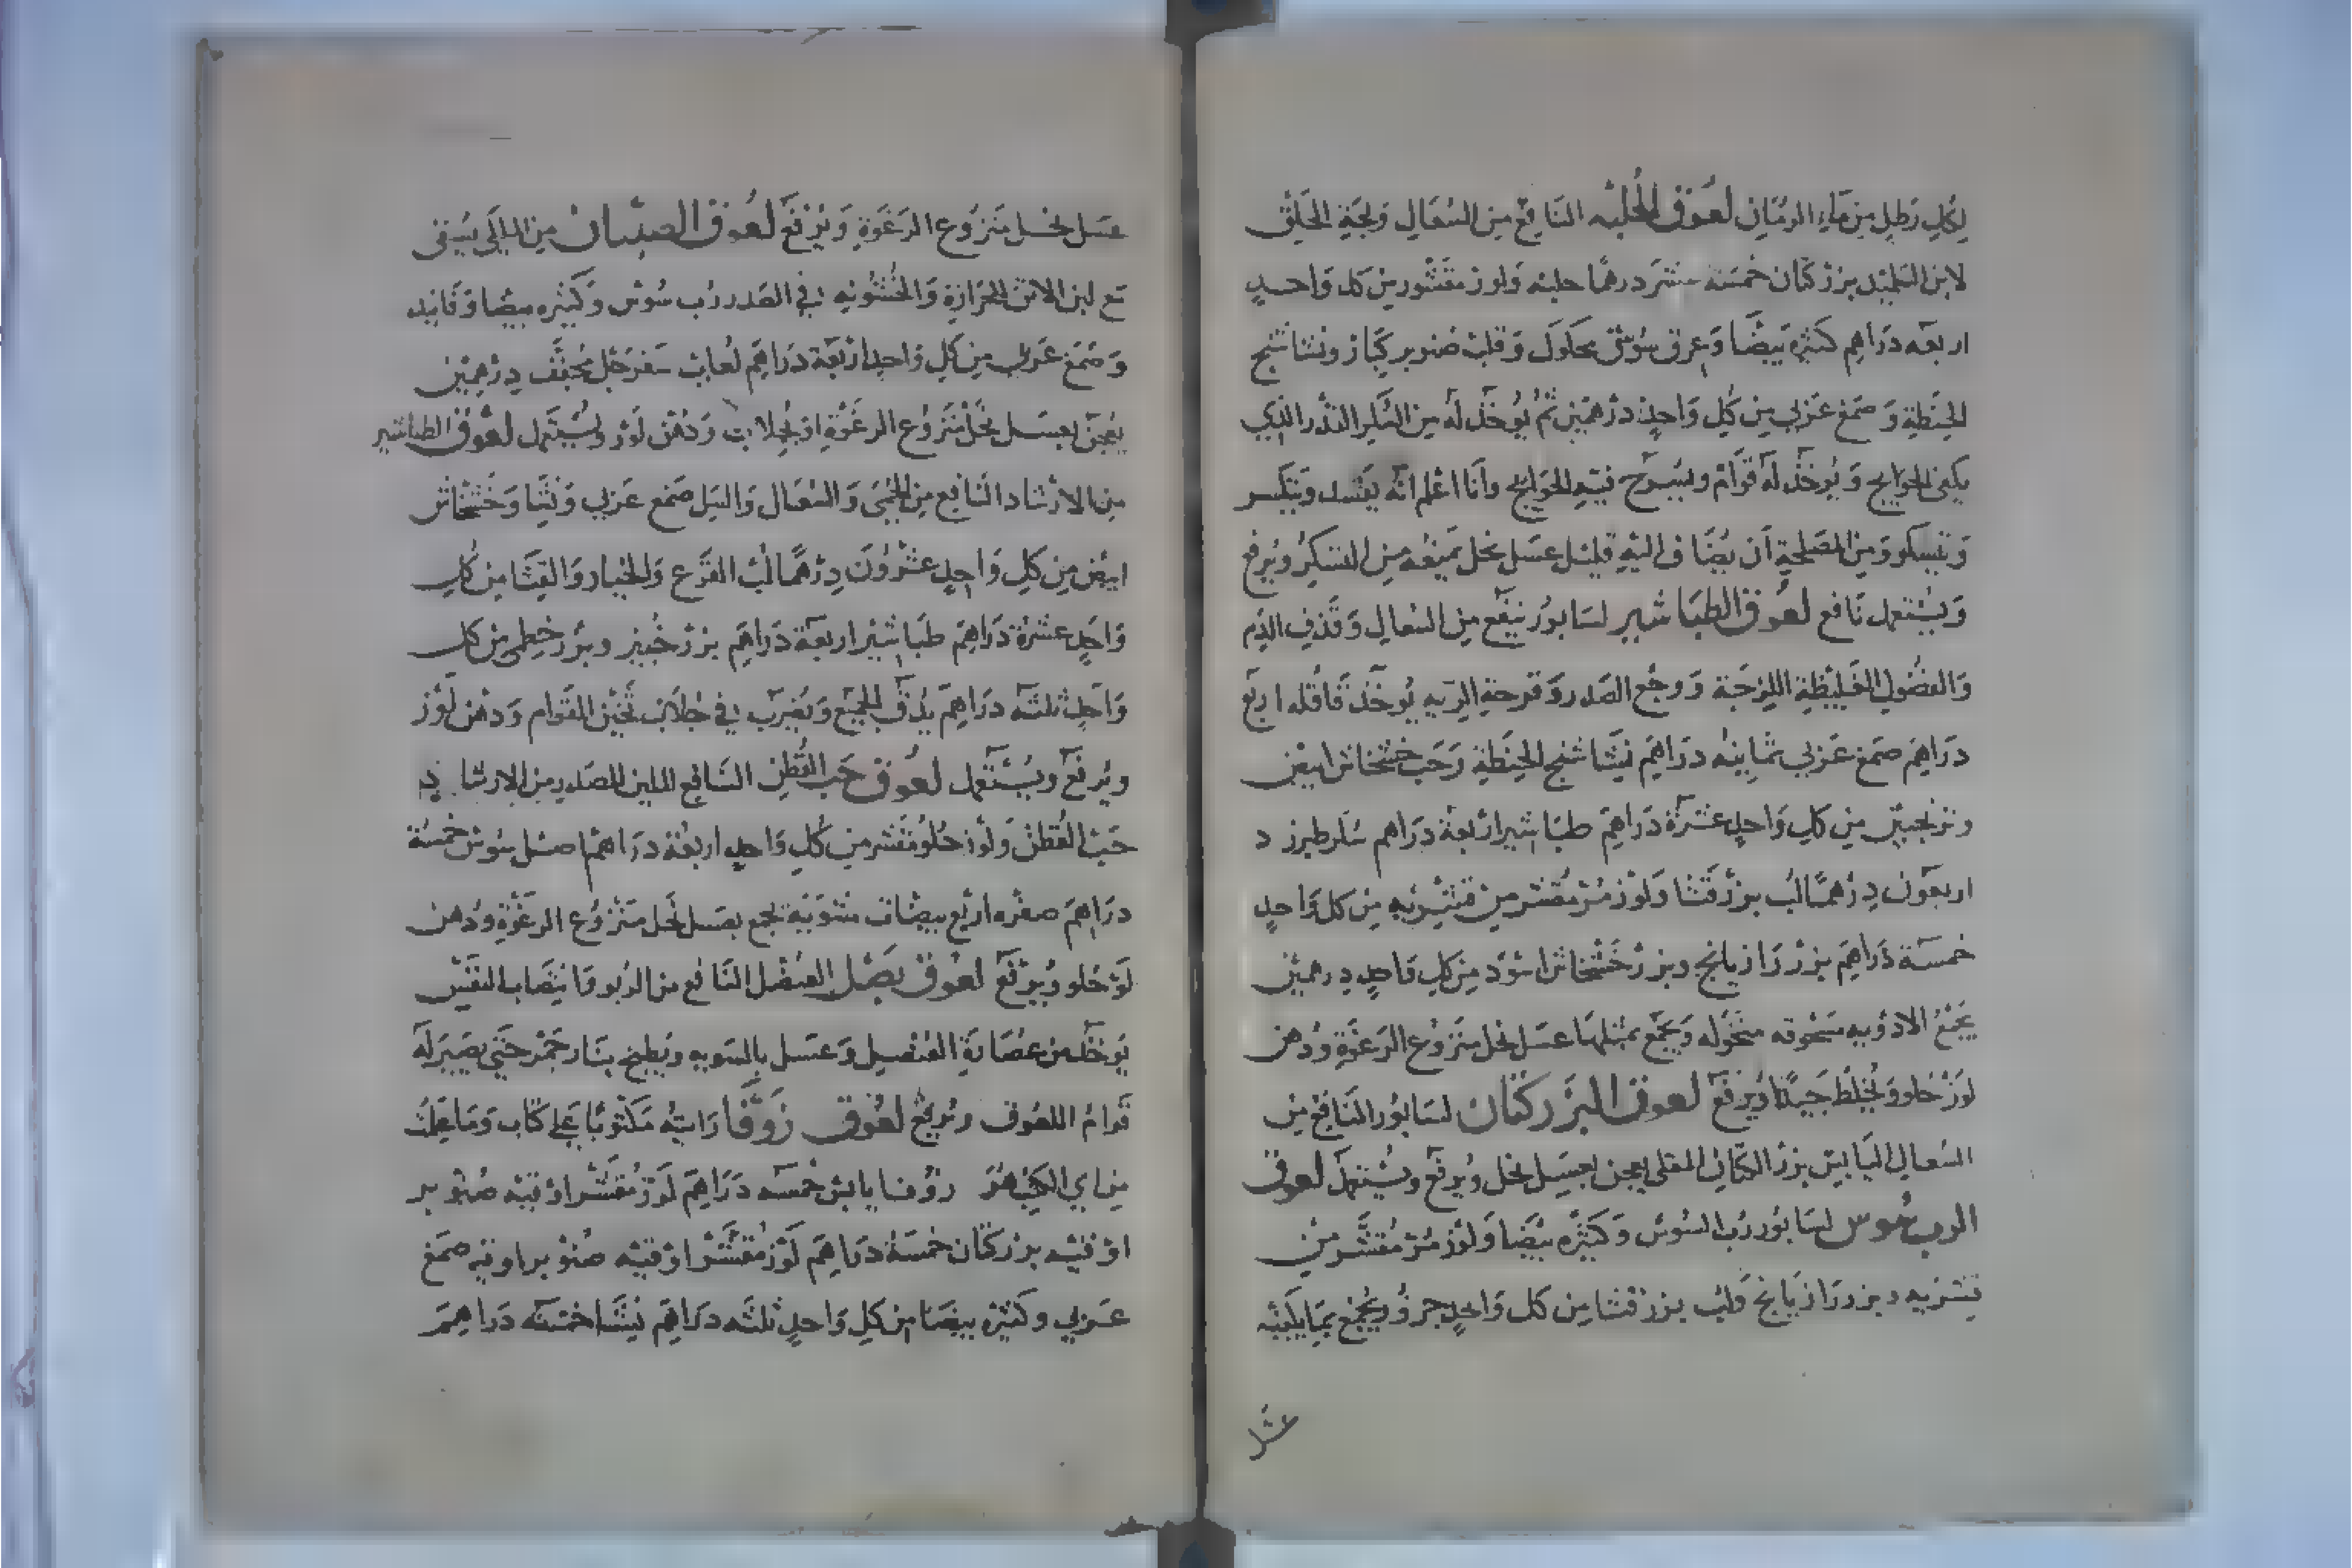 لكل رطل من ماء الرمان لعوق الحلبه النافع من السعال ولجة الحلق
لابن التلميذ بزر كتان خمسة عشر درهما حلبه ولوز مقشور من كل واحد
اربعه دراهم كثيره بيضا وعرق سوس محلول وقلب صنوبر كبار ونشاشتج
الحنطة وصمغ عربي من كل واحد درهمين ثم يوخذ له من السكر القدر الذي
يكفي الحوايج ويوخذ له قوام ويسيرح فيه الحوايج وانا اعلم انه يفسد وينكسر
ويتسكر ومن المصلحة ان يضاف اليه قليل عسل نحل يمنعه من السكر ويرفع
ويستعمل نافع لعوق الطباشير لسابور ينفع من السعال وقذف الدم
والفضول الغليظة اللزجة ووجع الصدر وقرحة الريه يوخذ قاقله اربع
دراهم صمغ عربي ثمانيه دراهم نشاشتج الحنطة وحب خشخاش ابيض
وترنجبين من كل واحد عشرة دراهم طباشير اربعة دراهم سكر طبرزد
اربعون درهما لب بزر قثا ولوز مر مقشر من قشريه من كل واحد
خمسة دراهم بزر رازيانج وبزر خشخاش اسود من كل واحد درهمين
يجمع الادويه مسحوقه منخوله ويجمع بمثلها عسل نحل منزوع الرغوة ودهن
لوز حلو ويخلط جيدا ويرفع لعوق البزر كتان لسابور النافع من
السعال اليابس بزر الكتان المقلي يعجن بعسل نحل ويرفع ويستعمل لعوق
الرب سوس لسابور رب السوس وكثيره بيضا ولوز مر مقشر من
قشريه وبزر رازيانج ولب بزر قثا من كل واحد جزو ويجمع بما يكفيه
عسل
عسل نحل منزوع الرغوة ويرفع لعوق الصبيان من المالكي يسقى
مع لبن الاتن للحرارة والخشونه في الصدر رب سوس وكثيره بيضا وفانيد
وصمغ عربي من كل واحد اربعة دراهم لعاب سفرجل مجفف درهمين
يعجن بعسل نحل منزوع الرغوة او بجلاب ودهن لوز ويستعمل لعوق الطباشير
من الارشاد النافع من الحمى والسعال والسل صمغ عربي ونشا وخشخاش
ابيض من كل واحد عشرون درهما لب القرع والخيار والقثا من كل
واحد عشرة دراهم طباشير اربعة دراهم بزر خبيز وبزر خطمي من كل
واحد ثلثه دراهم يدق الجميع ويضرب في جلاب ثخين القوام ودهن لوز
ويرفع ويستعمل لعوق حب القطن النافع الملين للصدر من الارشاد
حب القطن ولوز حلو مقشر من كل واحد اربعة دراهم اصل سوس خمسة
دراهم صفره اربع بيضات مشويه تجمع بعسل نحل منزوع الرغوة ودهن
لوز حلو ويرفع لعوق بصل العنصل النافع من الربو وانتصاب النفس
يوخذ من عصارة العنصل وعسل بالسويه ويطبخ بنار جمر حتى يصير له
قوام اللعوق ويرفع لعوق زوفا رايته مكتوبا على كتاب وما علمت
من اي الكتب هو زوفا يابس خمسه دراهم لوز مقشر اوقيه صنوبر
اوقيه بزر كتان خمسة دراهم لوز مقشر اوقيه صنوبر اوقيه صمغ
عربي وكثيره بيضا من كل واحد ثلثه دراهم نشا خمسه دراهم